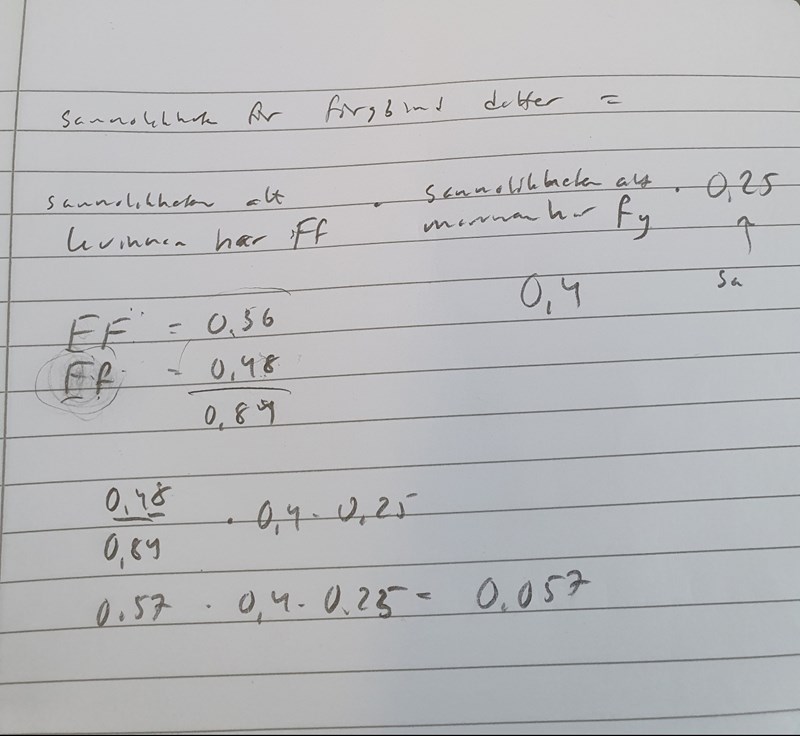 Sannolikhet för färgblind dotter =
sannolikheten att · Sannolikheten att · 0,25
kvinnan har Ff mannen har fy ↑
0,4 Sa
FF = 0,36
Ff = 0,48
0,84
0,48
0,84 · 0,4 · 0,25
0.57 · 0,4 · 0.25 = 0.057